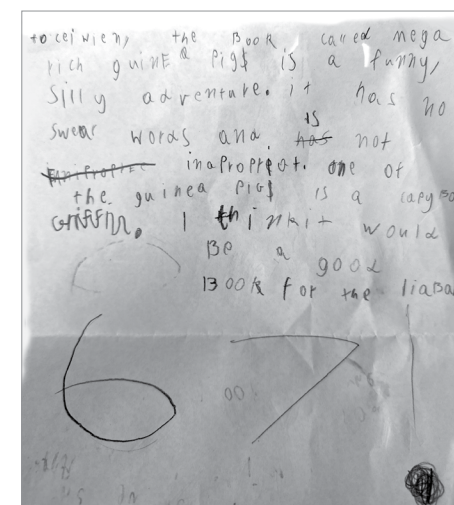 to ceiwien, the Book called mega
rich guinea Pigs is a funny,
silly adventure. it has no
swear words and, is has not
inapropreot. one of
the guinea Pigs is a capyBa
Griffin. I think it would
Be a good
Book for the liaBa
6 7